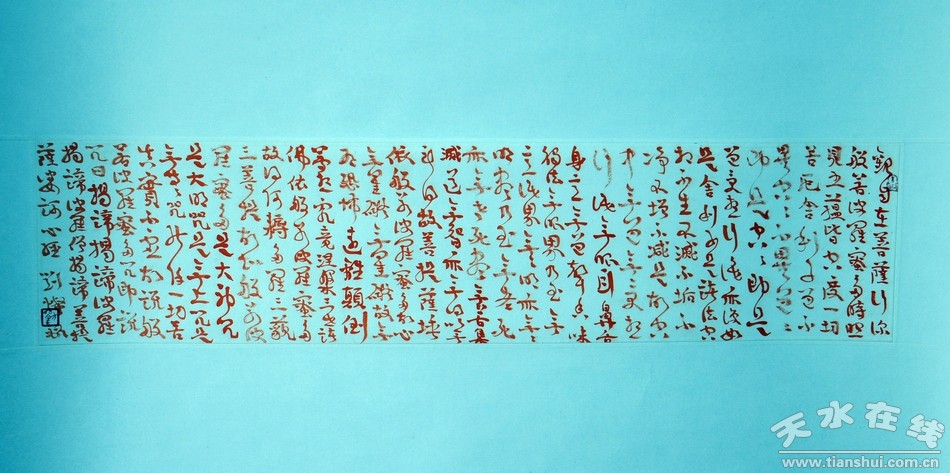 觀自在菩薩行深
般若波羅蜜多時照
見五蘊皆空度一切
苦厄舍利子色不
異空空不異色色
即是空空即是
色受想行識亦復如
是舍利子是諸法空
相不生不滅不垢不
淨不增不減是故空
中無色無受想
行識無眼耳鼻舌
身意無色聲香味
觸法無眼界乃至無
意識界無無明亦無
無明盡乃至無老死
亦無老死盡無苦集
滅道無智亦無得以無
所得故菩提薩埵
依般若波羅蜜多故心
無罣礙無罣礙故無
有恐怖遠離顛倒
夢想究竟涅槃三世諸
佛依般若波羅蜜多
故得阿耨多羅三藐
三菩提故知般若波
羅蜜多是大神咒
是大明咒是無上咒是
無等等咒能除一切苦
真實不虛故說般
若波羅蜜多咒即說
咒曰揭諦揭諦波羅
揭諦波羅僧揭諦菩提
薩婆訶心經
天水在线
www.tianshui.com.cn